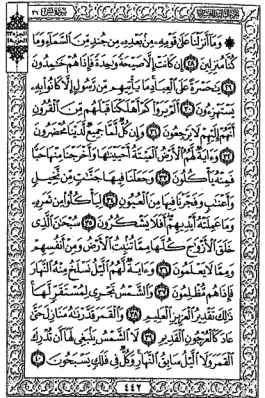 وَمَا أَنزَلْنَا عَلَىٰ قَوْمِهِ مِنْ بَعْدِهِ مِن جُندٍ مِّنَ السَّمَاءِ وَمَا
كُنَّا مُنزِلِينَ ٢٨ إِن كَانَتْ إِلَّا صَيْحَةً وَٰحِدَةً فَإِذَا هُمْ خَٰمِدُونَ
٢٩ يَٰحَسْرَةً عَلَى الْعِبَادِ مَا يَأْتِيهِم مِّن رَّسُولٍ إِلَّا كَانُوا بِهِ
يَسْتَهْزِءُونَ ٣٠ أَلَمْ يَرَوْا كَمْ أَهْلَكْنَا قَبْلَهُم مِّنَ الْقُرُونِ
أَنَّهُمْ إِلَيْهِمْ لَا يَرْجِعُونَ ٣١ وَإِن كُلٌّ لَّمَّا جَمِيعٌ لَّدَيْنَا مُحْضَرُونَ
٣٢ وَءَايَةٌ لَّهُمُ الْأَرْضُ الْمَيْتَةُ أَحْيَيْنَٰهَا وَأَخْرَجْنَا مِنْهَا حَبًّا
فَمِنْهُ يَأْكُلُونَ ٣٣ وَجَعَلْنَا فِيهَا جَنَّٰتٍ مِّن نَّخِيلٍ
وَأَعْنَٰبٍ وَفَجَّرْنَا فِيهَا مِنَ الْعُيُونِ ٣٤ لِيَأْكُلُوا مِن ثَمَرِهِ
وَمَا عَمِلَتْهُ أَيْدِيهِمْ أَفَلَا يَشْكُرُونَ ٣٥ سُبْحَٰنَ الَّذِي
خَلَقَ الْأَزْوَٰجَ كُلَّهَا مِمَّا تُنبِتُ الْأَرْضُ وَمِنْ أَنفُسِهِمْ
وَمِمَّا لَا يَعْلَمُونَ ٣٦ وَءَايَةٌ لَّهُمُ الَّيْلُ نَسْلَخُ مِنْهُ النَّهَارَ
فَإِذَا هُم مُّظْلِمُونَ ٣٧ وَالشَّمْسُ تَجْرِي لِمُسْتَقَرٍّ لَّهَا
ذَٰلِكَ تَقْدِيرُ الْعَزِيزِ الْعَلِيمِ ٣٨ وَالْقَمَرَ قَدَّرْنَٰهُ مَنَازِلَ حَتَّىٰ
عَادَ كَالْعُرْجُونِ الْقَدِيمِ ٣٩ لَا الشَّمْسُ يَنبَغِي لَهَا أَن تُدْرِكَ
الْقَمَرَ وَلَا الَّيْلُ سَابِقُ النَّهَارِ وَكُلٌّ فِي فَلَكٍ يَسْبَحُونَ ٤٠
٤٤٢